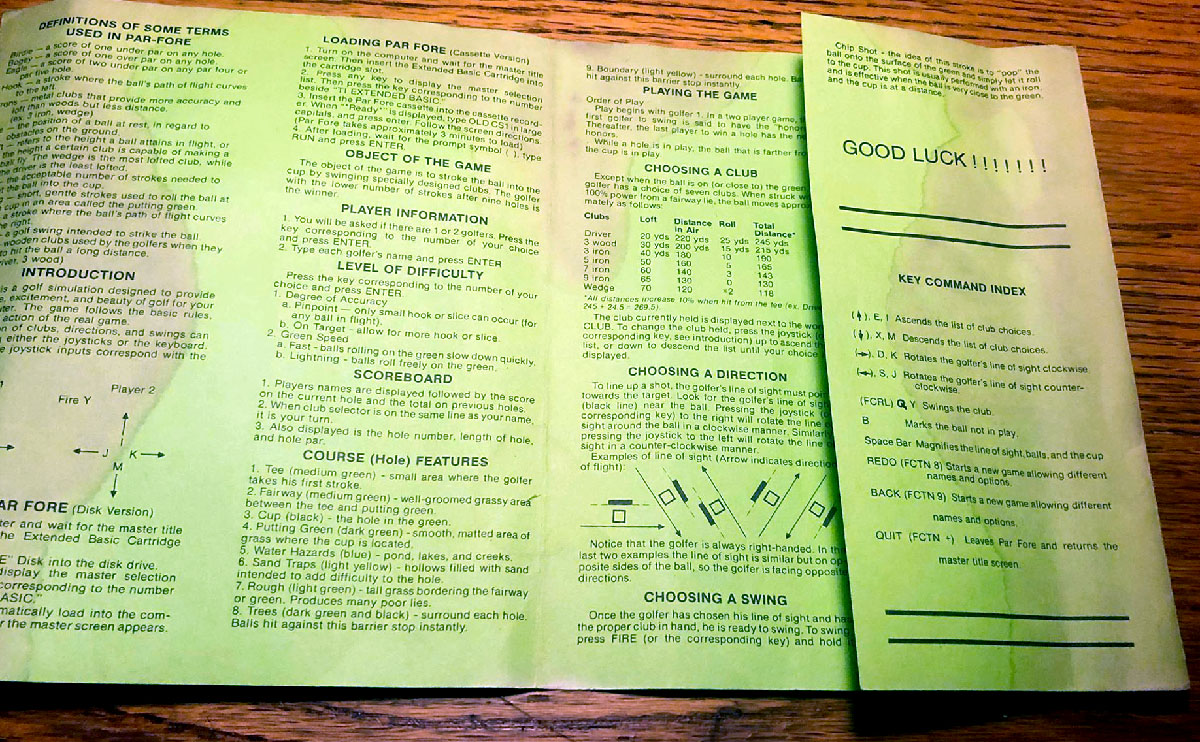 DEFINITIONS OF SOME TERMS
USED IN PAR-FORE
Birdie — a score of one under par on any hole.
Bogey — a score of one over par on any hole.
Eagle — a score of two under on any par four or
par five hole.
Hook — a stroke where the ball's path of flight curves
to the left.
— metal clubs that provide more accuracy and
loft than woods but less distance.
(ex. 3 iron, wedge)
— the position of a ball at rest, in regard to
obstacles on the ground.
— refers to the height a ball attains in flight, or
the height a certain club is capable of making a
ball fly. The wedge is the most lofted club, while
the driver is the least lofted.
— the acceptable number of strokes needed to
the ball into the cup.
— short, gentle strokes used to roll the ball at
cup in an area called the putting green.
a stroke where the ball's path of flight curves
right.
— a golf swing intended to strike the ball.
wooden clubs used by the golfers when they
to hit the ball a long distance.
3 wood)
INTRODUCTION
is a golf simulation designed to provide
excitement, and beauty of golf for your
The game follows the basic rules,
action of the real game.
of clubs, directions, and swings can
either the joysticks or the keyboard.
joystick inputs correspond with the
Player 2
Fire Y
J K
M
PAR FORE (Disk Version)
and wait for the master title
the Extended Basic Cartridge
Disk into the disk drive.
display the master selection
corresponding to the number
BASIC."
load into the com-
the master screen appears.
LOADING PAR FORE (Cassette Version)
1. Turn on the computer and wait for the master title
screen. Then insert the Extended Basic Cartridge into
the cartridge slot.
2. Press any key to display the master selection
list. Then press the key corresponding to the number
beside "TI EXTENDED BASIC."
3. Insert the Par Fore cassette into the cassette record-
er. When "*Ready*" is displayed, type OLD CS1 in large
capitals, and press enter. Follow the screen directions.
(Par Fore takes approximately 3 minutes to load)
4. After loading, wait for the prompt symbol ( ), type
RUN and press ENTER.
OBJECT OF THE GAME
The object of the game is to stroke the ball into the
cup by swinging specially designed clubs. The golfer
with the lower number of strokes after nine holes is
the winner.
PLAYER INFORMATION
1. You will be asked if there are 1 or 2 golfers. Press the
key corresponding to the number of your choice
and press ENTER.
2. Type each golfer's name and press ENTER
LEVEL OF DIFFICULTY
Press the key corresponding to the number of your
choice and press ENTER.
1. Degree of Accuracy
a. Pinpoint — only small hook or slice can occur (for
any ball in flight).
b. On Target - allow for more hook or slice.
2. Green Speed
a. Fast - balls rolling on the green slow down quickly.
b. Lightning - balls roll freely on the green.
SCOREBOARD
1. Players names are displayed followed by the score
on the current hole and the total on previous holes.
2. When club selector is on the same line as your name,
it is your turn.
3. Also displayed is the hole number, length of hole,
and hole par.
COURSE (Hole) FEATURES
1. Tee (medium green) - small area where the golfer
takes his first stroke.
2. Fairway (medium green) - well-groomed grassy area
between the tee and putting green.
3. Cup (black) - the hole in the green.
4. Putting Green (dark green) - smooth, matted area of
grass where the cup is located.
5. Water Hazards (blue) - pond, lakes, and creeks.
6. Sand Traps (light yellow) - hollows filled with sand
intended to add difficulty to the hole.
7. Rough (light green) - tall grass bordering the fairway
or green. Produces many poor lies.
8. Trees (dark green and black) - surround each hole.
Balls hit against this barrier stop instantly.
9. Boundary (light yellow) - surround each hole.
hit against this barrier stop instantly
PLAYING THE GAME
Order of Play
Play begins with golfer 1. In a two player game,
first golfer to swing is said to have the "honor
Thereafter, the last player to win a hole has the
honors.
While a hole is in play, the ball that is farther
the cup is in play.
CHOOSING A CLUB
Except when the ball is on (or close to) the green
golfer has a choice of seven clubs. When struck
100% power from a fairway lie, the ball moves approxi
mately as follows:
Clubs Loft Distance in Air Roll Total Distance*
Driver 20 yds 220 yds 25 yds 245 yds
3 wood 30 yds 200 yds 15 yds 215 yds
3 iron 40 yds 180 10 190
5 iron 50 160 5 165
7 iron 60 140 3 143
9 iron 65 130 0 130
Wedge 70 120 118
*All distances increase 10% when hit from the tee (ex.
245 + 24.5 = 269.5).
The club currently held is displayed next to the
CLUB. To change the club held, press the joystick
corresponding key, see introduction) up to ascend
list, or down to descend the list until your choice
displayed.
CHOOSING A DIRECTION
To line up a shot, the golfer's line of sight must
towards the target. Look for the golfer's line
(black line) near the ball. Pressing the joystick
corresponding key) to the right will rotate the line
sight around the ball in a clockwise manner.
pressing the joystick to the left will rotate the line
sight in a counter-clockwise manner.
Examples of line of sight (Arrow indicates
of flight):
Notice that the golfer is always right-handed. In
last two examples the line of sight is similar but on op
posite sides of the ball, so the golfer is facing opposite
directions.
CHOOSING A SWING
Once the golfer has chosen his line of sight and
the proper club in hand, he is ready to swing. To swing
press FIRE (or the corresponding key) and hold
Chip Shot - the idea of this stroke is to "pop" the
ball onto the surface of the green and simply let it roll
to the cup. This shot is usually performed with an iron,
and is effective when the ball is very close to the green,
and the cup is at a distance.
GOOD LUCK ! ! ! ! ! ! !
KEY COMMAND INDEX
(↑), E, I Ascends the list of club choices.
(↓), X, M Descends the list of club choices.
(→), D, K Rotates the golfer's line of sight clockwise.
(←), S, J Rotates the golfer's line of sight counter-
clockwise.
(FCRL) Q, Y Swings the club.
B Marks the ball not in play.
Space Bar Magnifies the line of sight, balls, and the cup
REDO (FCTN 8) Starts a new game allowing different
names and options.
BACK (FCTN 9) Starts a new game allowing different
names and options.
QUIT (FCTN +) Leaves Par Fore and returns the
master title screen.